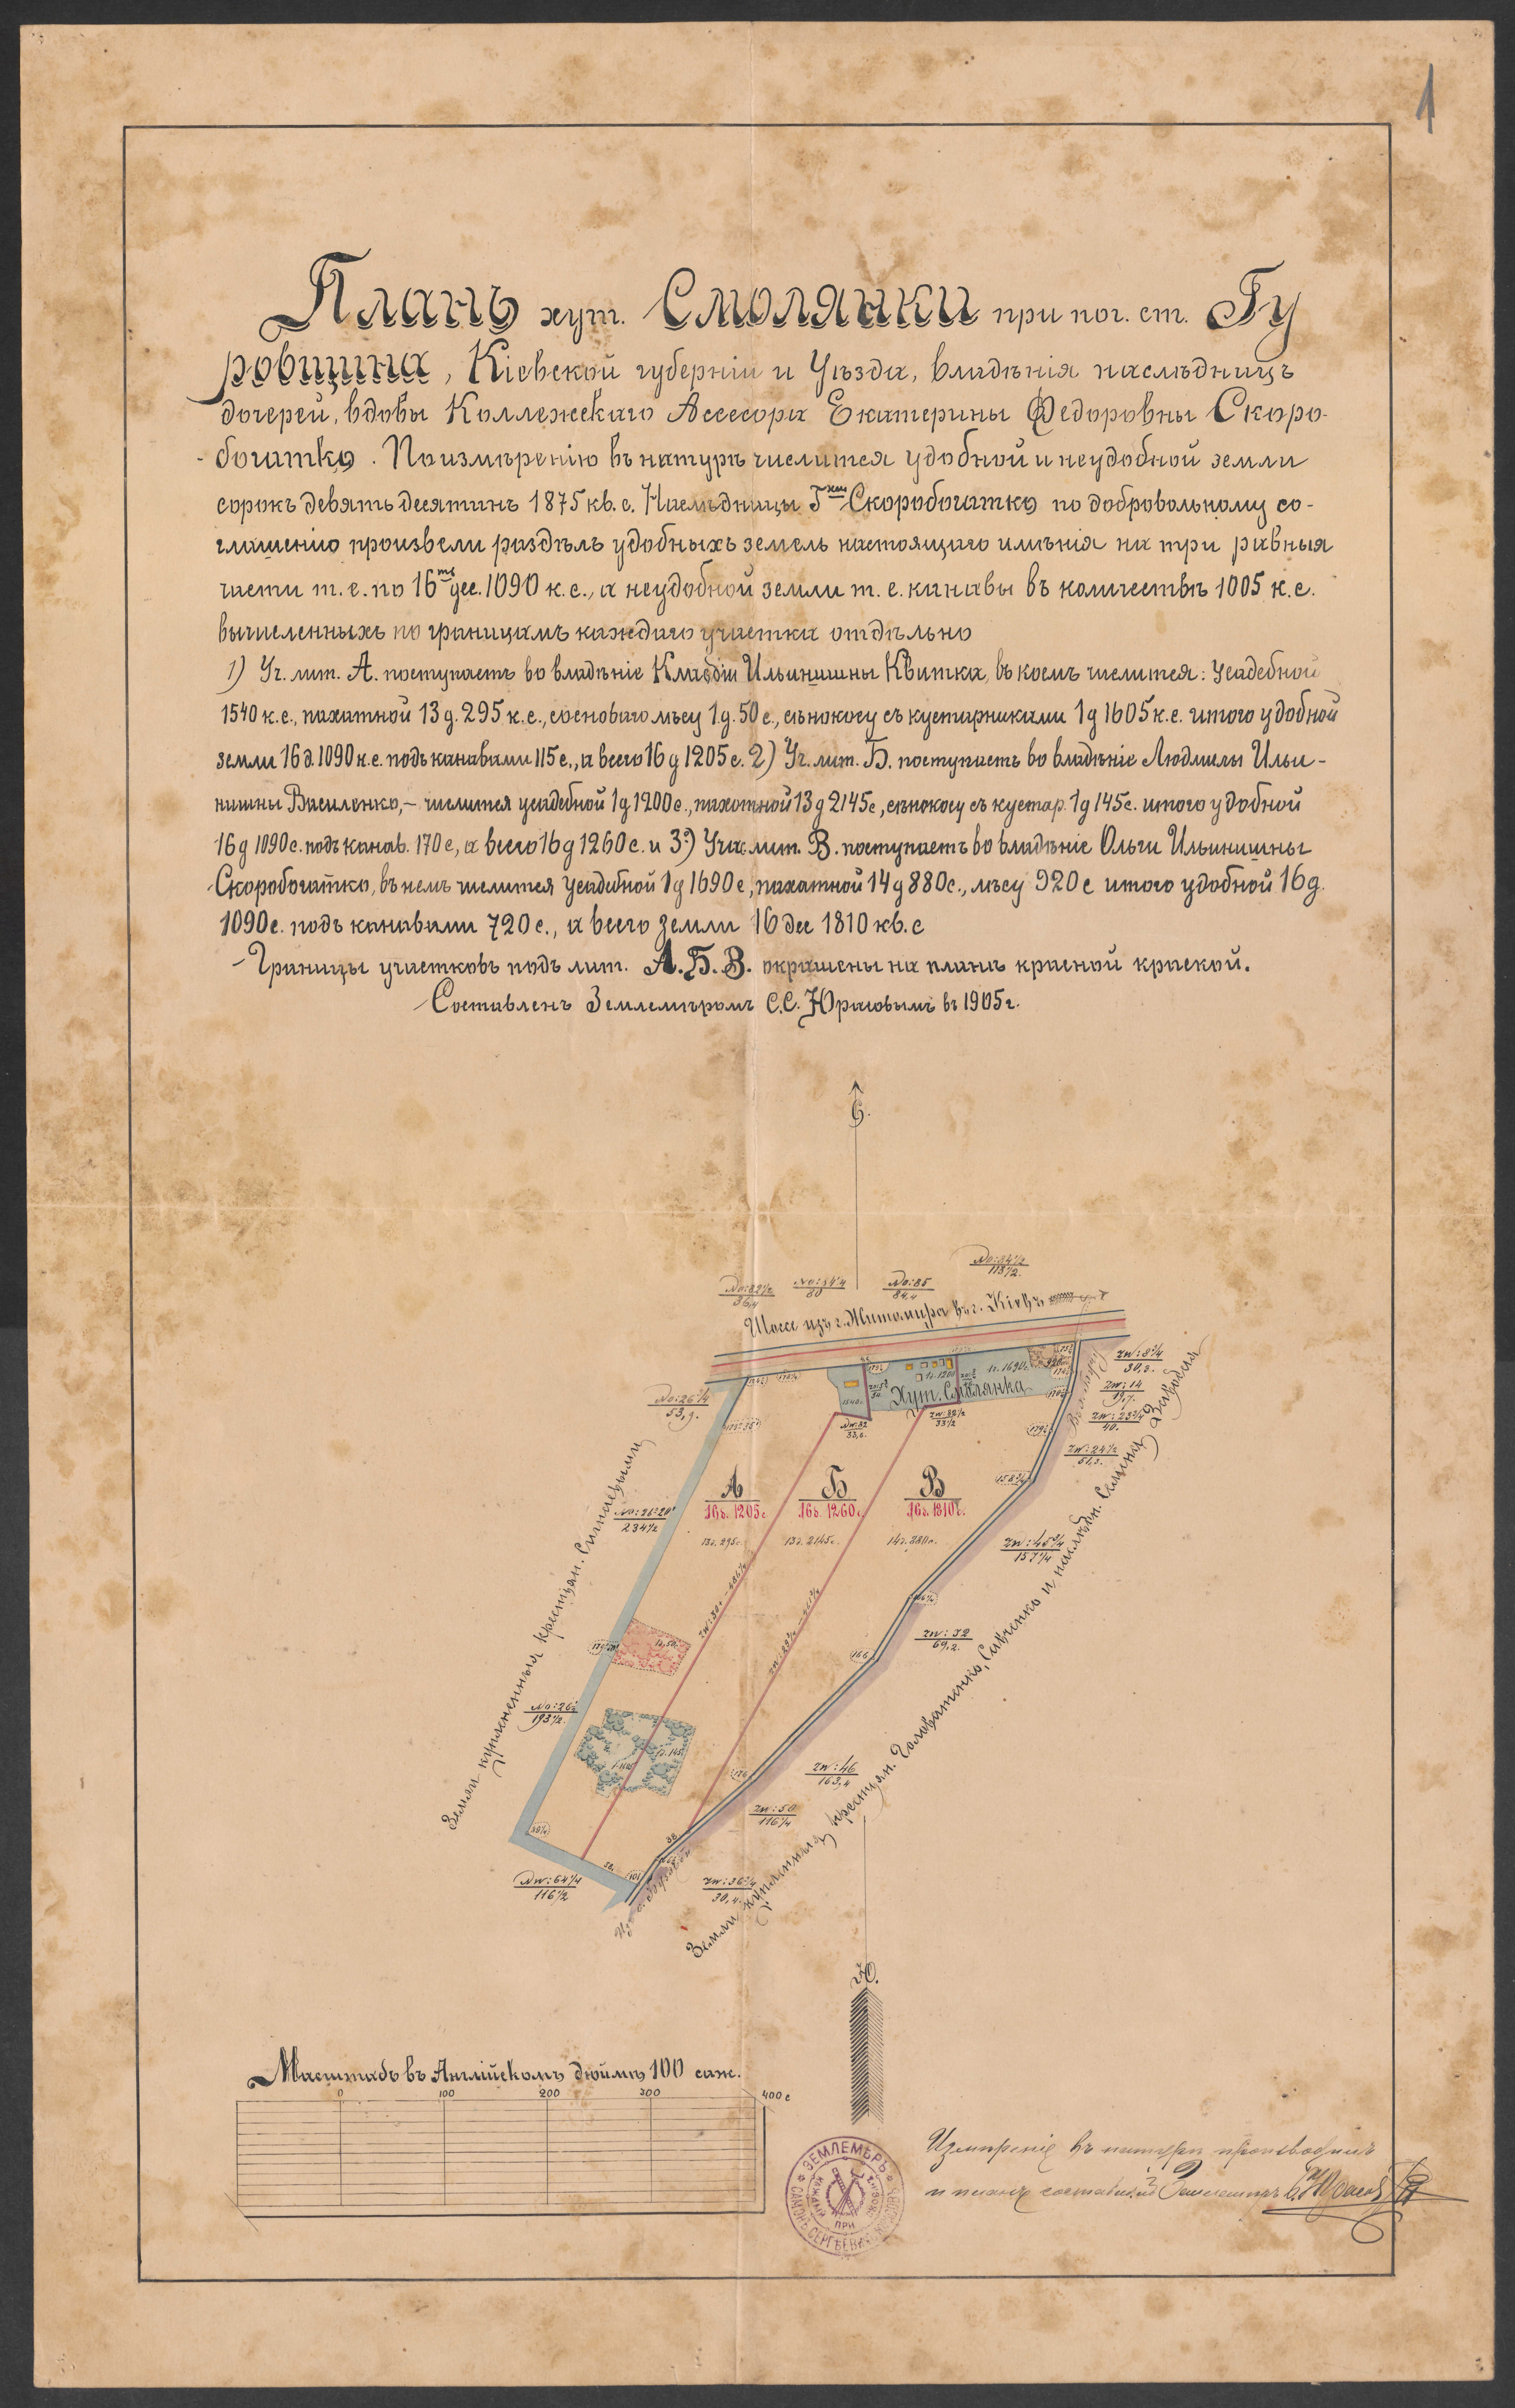 1
Планъ хут. Смолянки при поч. ст. Гу
ровщина, Кіевской губерніи и Уѣзда, владѣнія наслѣдницъ
дочерей, вдовы Коллежскаго Ассесора Екатерины Ѳедоровны Скоро-
-богатко. По измѣренію въ натурѣ числится удобной и неудобной земли
сорокъ девять десятинъ 1875 кв. с. Наслѣдницы Г Скоробогатко по добровольному со-
глашенію произвели раздѣлъ удобныхъ земель настоящаго имѣнія на три равныя
части т. е. по 16 ть дес. 1090 к. с., а неудобной земли т. е. канавы въ количествѣ 1005 к. с.
вычисленныхъ по границамъ каждаго участка отдѣльно
1) Уч. лит. А. поступаетъ во владѣніе Клавдіи Ильинишны Квитка, въ коемъ числится: усадебной
1540 к. с., пахатной 13 д. 295 к. с., сосноваго лѣсу 1 д. 50 с., сѣнокосу съ кустарниками 1 д 1605 к. с. итого удобной
земли 16 д. 1090 к. с. подъ канавами 115 с., а всего 16 д 1205 с. 2) Уч. лит. Б. поступаетъ во владѣніе Людмилы Ильи-
нишны Василенко,- числится усадебной 1 д 1200 с., пахотной 13 д 2145 с, сѣнокосу съ кустар. 1 д 145 с. итого удобной
16 д 1090 с. подъ канав. 170 с, а всего 16 д 1260 с. и 3) Учас. лит. В. поступаетъ во владѣніе Ольги Ильинишны
Скоробогатко, въ немъ числится усадебной 1 д 1690 с, пахатной 14 д 880 с., лѣсу 920 с итого удобной 16 д.
1090 с. подъ канавами 720 с., а всего земли 16 дес 1810 кв. с
- Границы участковъ подъ лит. А. Б. В. окрашены на планѣ красной краской.
Составленъ Землемѣромъ С. С. Юрасовымъ въ 1905 г.
С.
Шоссе изъ г. Житомира въ г. Кіевъ
Хут. Смолянка
1540
1 д. 1200
1 д. 1690 с
920
А
16 д. 1205 с
13 д. 295 с.
Б
16 д. 1260 с.
13 д. 2145 с.
В
16 д. 1810 с.
14 д. 880 с.
NO: 85
84,4
NO: 84 1/2
113 1/2
NO: 26 1/4
53,9.
ZW: 8 3/4
30,3.
ZW: 14
19,7.
ZW: 23 3/4
40.
ZW: 24 1/2
51,3.
ZW: 45 3/4
157 1/4
ZW: 32
69,2.
ZW: 46
163,4
ZW: 50
116 1/4
ZW: 36 3/4
30,4.
NW: 64 1/4
116 1/2
234 1/2
193 1/2
1 д. 50
1 д. 145
Земли купленныя крестьян.
Земли купленныя крестьян. Головатенко, Савченко и наслѣдн.
Ю.
Масштабъ въ Англійскомъ дюймѣ 100 саж.
0 100 200 300 400 с
ЗЕМЛЕМѢРЪ
САМСОНЪ СЕРГѢЕВИЧЪ
ПРИ
Измѣреніе въ натурѣ производилъ
и планъ составилъ Землемѣръ С. Юрасовъ